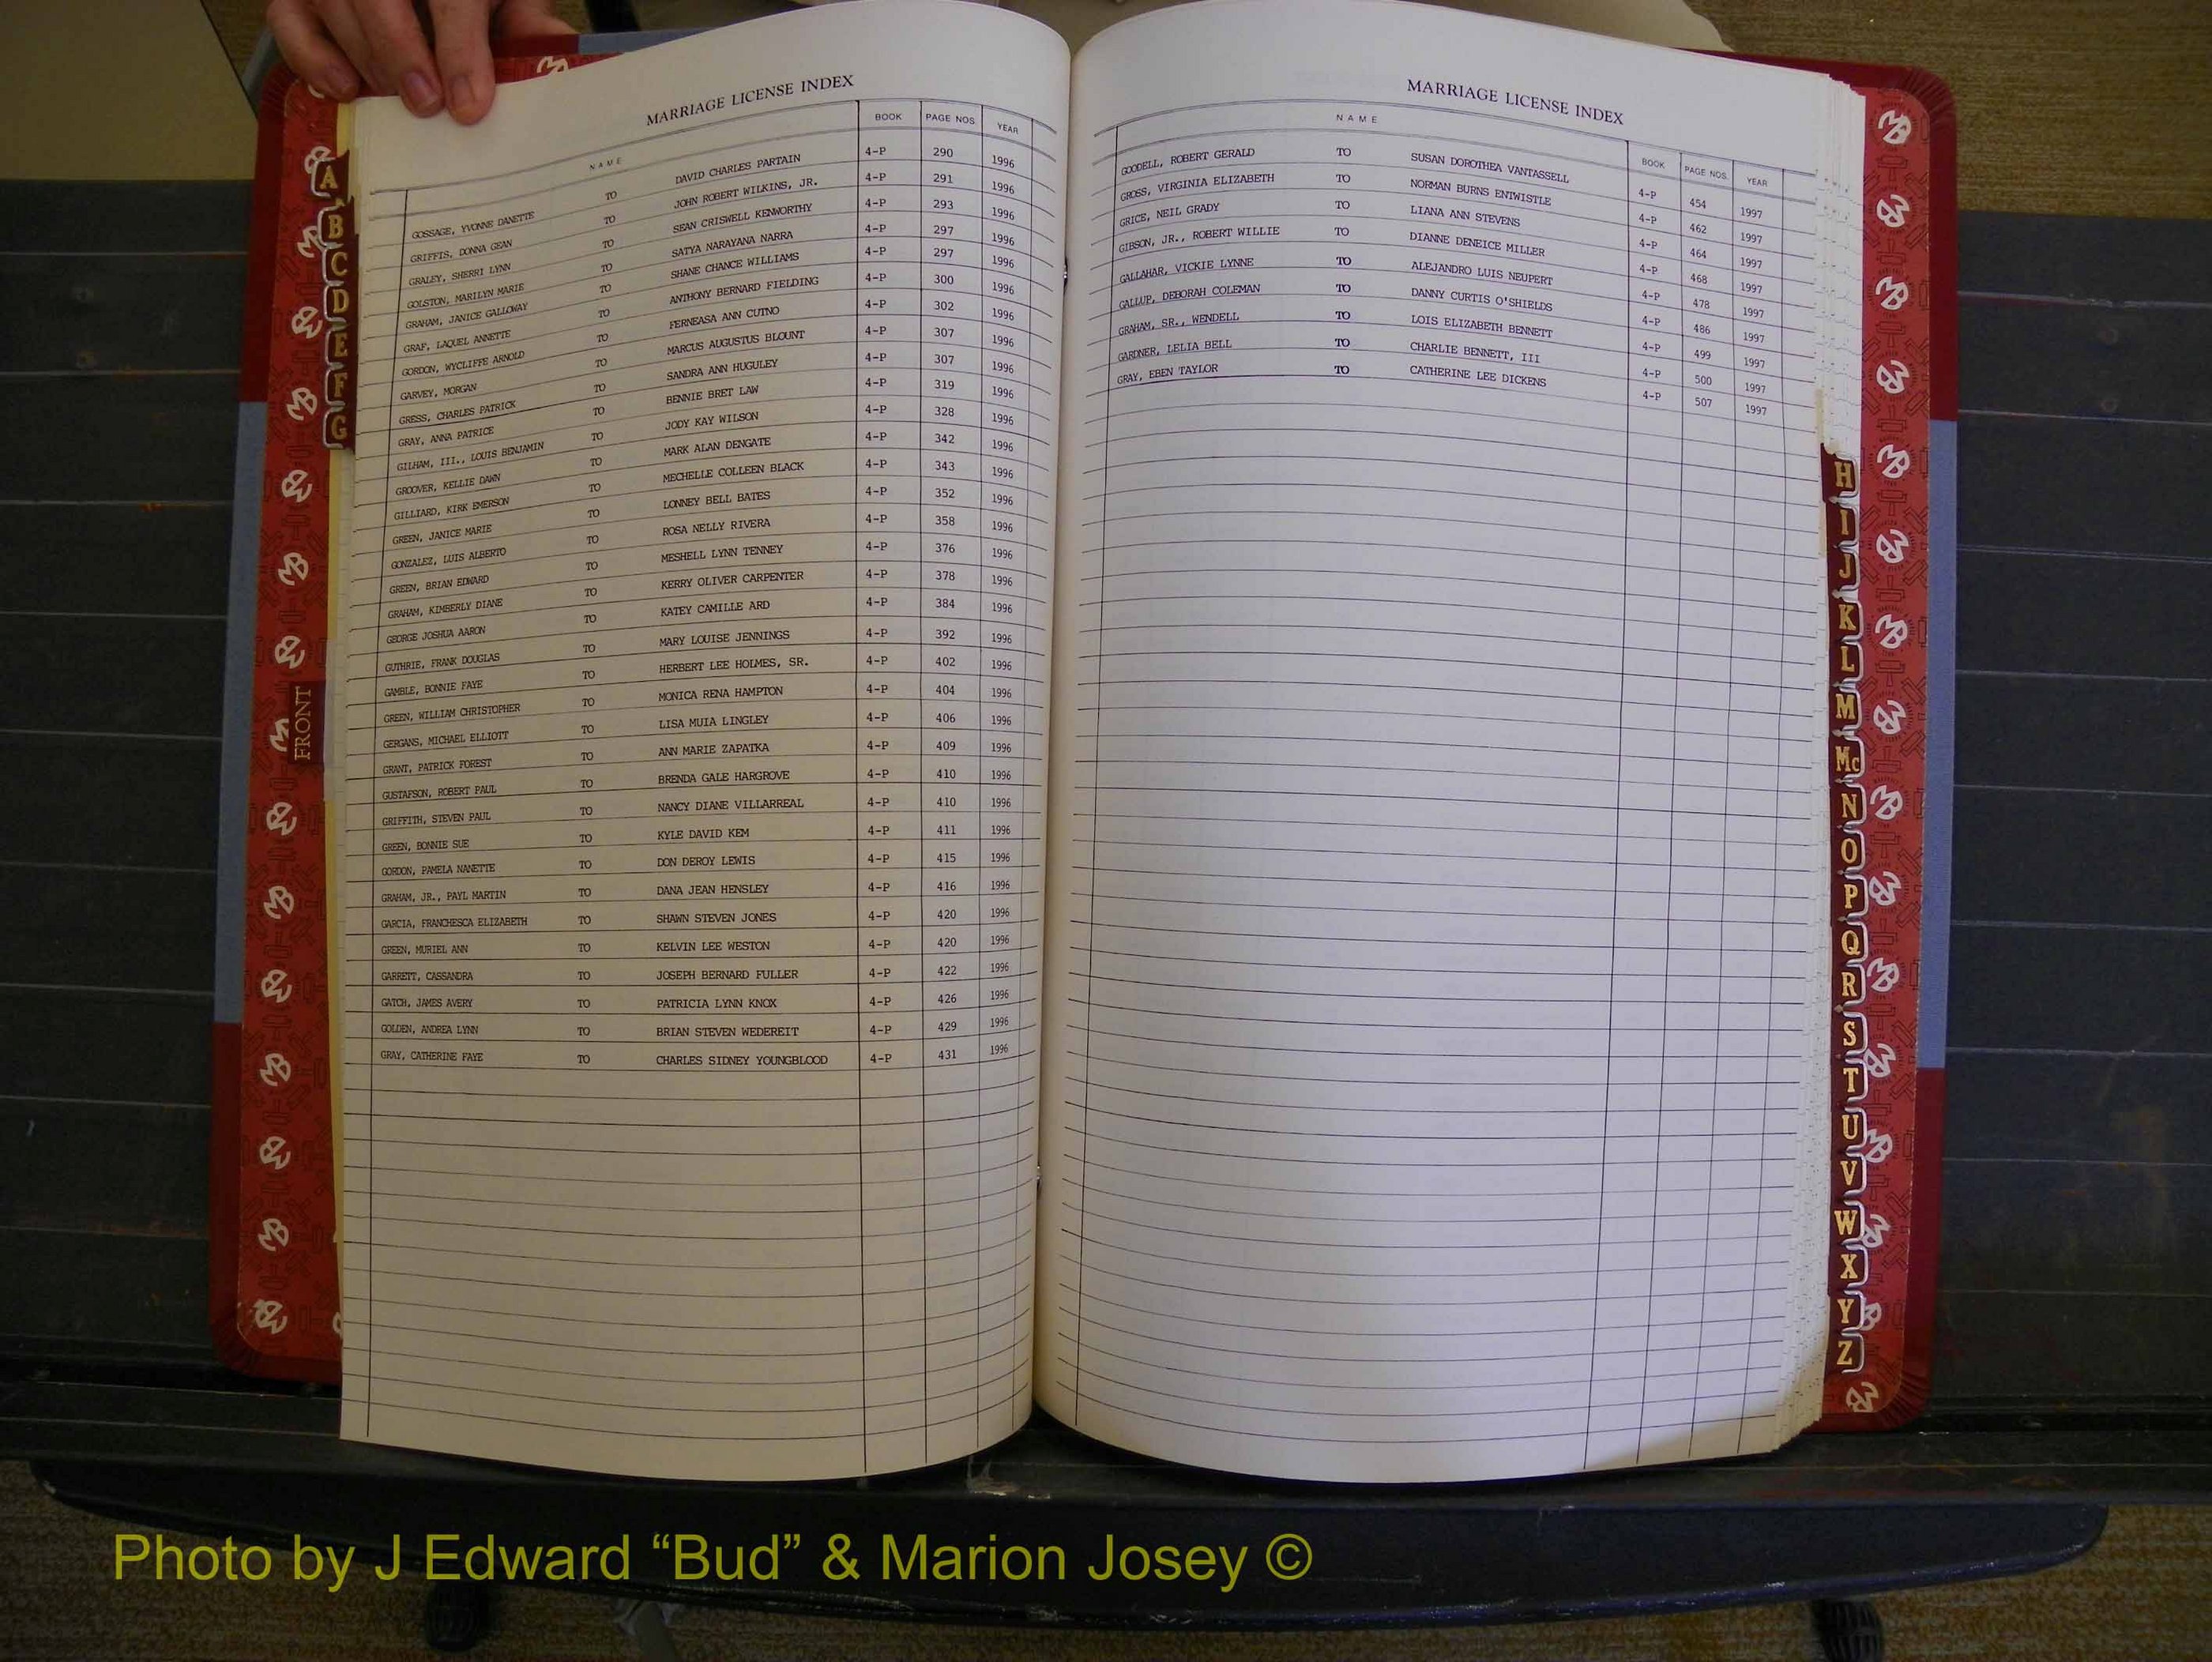 MARRIAGE LICENSE INDEX
NAME BOOK PAGE NOS. YEAR
GOSSAGE, YVONNE DANETTE TO DAVID CHARLES PARTAIN 4-P 290 1996
GRIFFIS, DONNA GEAN TO JOHN ROBERT WILKINS, JR. 4-P 291 1996
GRALEY, SHERRI LYNN TO SEAN CRISWELL KENWORTHY 4-P 293 1996
GOLSTON, MARILYN MARIE TO SATYA NARAYANA NARRA 4-P 297 1996
GRAHAM, JANICE GALLOWAY TO SHANE CHANCE WILLIAMS 4-P 297 1996
GRAF, LAQUEL ANNETTE TO ANTHONY BERNARD FIELDING 4-P 300 1996
GORDON, WYCLIFFE ARNOLD TO FERNEASA ANN CUTNO 4-P 302 1996
GARVEY, MORGAN TO MARCUS AUGUSTUS BLOUNT 4-P 307 1996
GRESS, CHARLES PATRICK TO SANDRA ANN HUGULEY 4-P 307 1996
GRAY, ANNA PATRICE TO BENNIE BRET LAW 4-P 319 1996
GILHAM, III., LOUIS BENJAMIN TO JODY KAY WILSON 4-P 328 1996
GROOVER, KELLIE DAWN TO MARK ALAN DENGATE 4-P 342 1996
GILLIARD, KIRK EMERSON TO MECHELLE COLLEEN BLACK 4-P 343 1996
GREEN, JANICE MARIE TO LONNEY BELL BATES 4-P 352 1996
GONZALEZ, LUIS ALBERTO TO ROSA NELLY RIVERA 4-P 358 1996
GREEN, BRIAN EDWARD TO MESHELL LYNN TENNEY 4-P 376 1996
GRAHAM, KIMBERLY DIANE TO KERRY OLIVER CARPENTER 4-P 378 1996
GEORGE JOSHUA AARON TO KATEY CAMILLE ARD 4-P 384 1996
GUTHRIE, FRANK DOUGLAS TO MARY LOUISE JENNINGS 4-P 392 1996
GAMBLE, BONNIE FAYE TO HERBERT LEE HOLMES, SR. 4-P 402 1996
GREEN, WILLIAM CHRISTOPHER TO MONICA RENA HAMPTON 4-P 404 1996
GERGANS, MICHAEL ELLIOTT TO LISA MUIA LINGLEY 4-P 406 1996
GRANT, PATRICK FOREST TO ANN MARIE ZAPATKA 4-P 409 1996
GUSTAFSON, ROBERT PAUL TO BRENDA GALE HARGROVE 4-P 410 1996
GRIFFITH, STEVEN PAUL TO NANCY DIANE VILLARREAL 4-P 410 1996
GREEN, BONNIE SUE TO KYLE DAVID KEM 4-P 411 1996
GORDON, PAMELA NANETTE TO DON DEROY LEWIS 4-P 415 1996
GRAHAM, JR., PAYL MARTIN TO DANA JEAN HENSLEY 4-P 416 1996
GARCIA, FRANCHESCA ELIZABETH TO SHAWN STEVEN JONES 4-P 420 1996
GREEN, MURIEL ANN TO KELVIN LEE WESTON 4-P 420 1996
GARRETT, CASSANDRA TO JOSEPH BERNARD FULLER 4-P 422 1996
GATCH, JAMES AVERY TO PATRICIA LYNN KNOX 4-P 426 1996
GOLDEN, ANDREA LYNN TO BRIAN STEVEN WEDEREIT 4-P 429 1996
GRAY, CATHERINE FAYE TO CHARLES SIDNEY YOUNGBLOOD 4-P 431 1996
A
B
C
D
E
F
G
FRONT
MARRIAGE LICENSE INDEX
NAME BOOK PAGE NOS. YEAR
GOODELL, ROBERT GERALD TO SUSAN DOROTHEA VANTASSELL 4-P 454 1997
GROSS, VIRGINIA ELIZABETH TO NORMAN BURNS ENTWISTLE 4-P 462 1997
GRICE, NEIL GRADY TO LIANA ANN STEVENS 4-P 464 1997
GIBSON, JR., ROBERT WILLIE TO DIANNE DENEICE MILLER 4-P 468 1997
GALLAHAR, VICKIE LYNNE TO ALEJANDRO LUIS NEUPERT 4-P 478 1997
GALLUP, DEBORAH COLEMAN TO DANNY CURTIS O'SHIELDS 4-P 486 1997
GRAHAM, SR., WENDELL TO LOIS ELIZABETH BENNETT 4-P 499 1997
GARDNER, LELIA BELL TO CHARLIE BENNETT, III 4-P 500 1997
GRAY, EBEN TAYLOR TO CATHERINE LEE DICKENS 4-P 507 1997
H
I
J
K
L
M
Mc
N
O
P
Q
R
S
T
U
V
W
X
Y
Z
Photo by J Edward “Bud” & Marion Josey ©